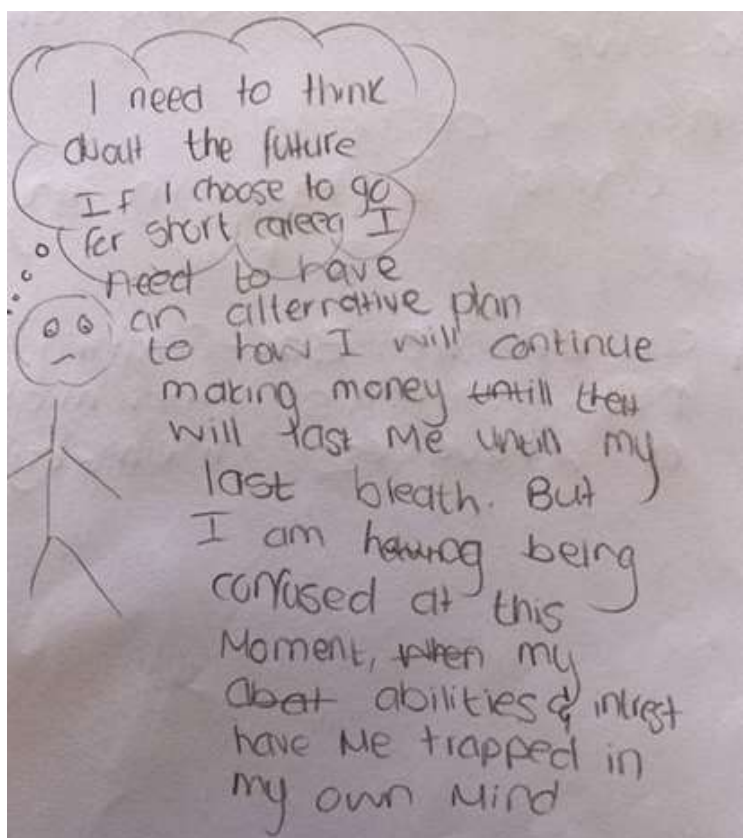 I need to think
about the future
If I choose to go
for short career I
need to have
an alternative plan
to how I will continue
making money untill then
will last me until my
last bleath. But
I am having being
confused at this
Moment, when my
abot abilities & intrest
have me trapped in
my own mind